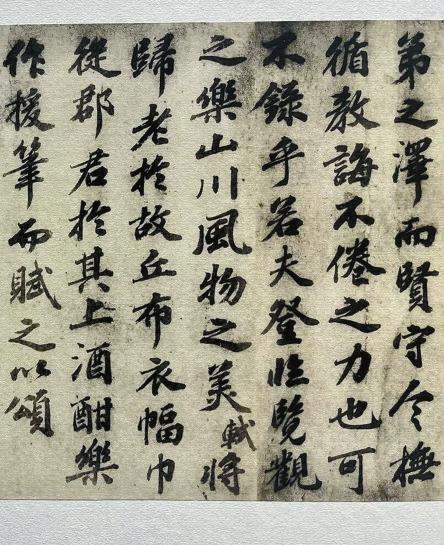 第之澤而賢守令撫
循教誨不倦之力也可
不錄乎若夫登臨覽觀
之樂山川風物之美軾將
歸老於故丘布衣幅巾
從郡君於其上酒酣樂
作援筆而賦之以頌